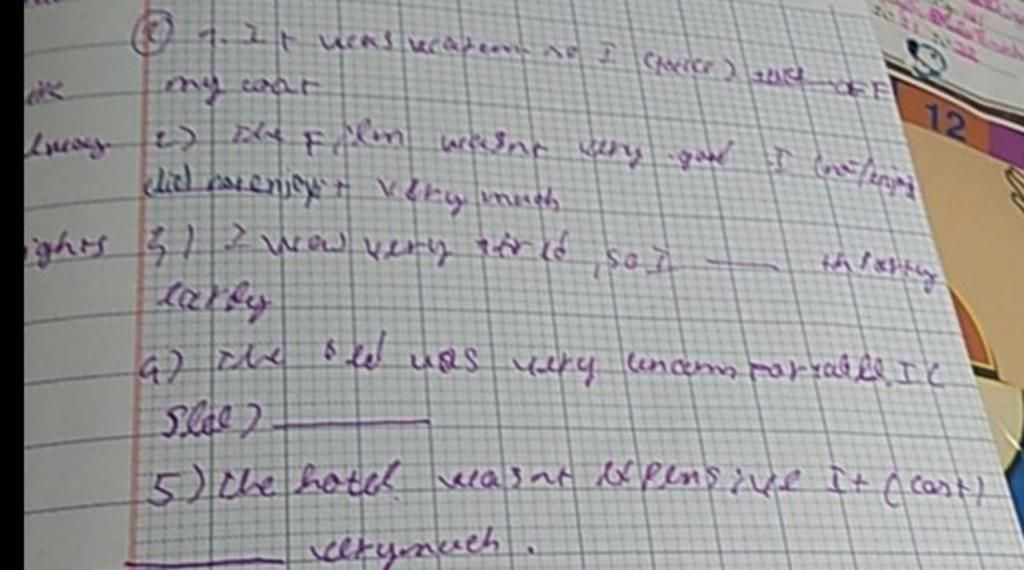 1. It was warm so I (take) took OFF
my coat
2) the Film wasnt very good I (not/enjoy
did not enjoy it very much
ights 3) I was very tired, so I ____ th party
early
4) the bed was very uncomfortable. I (
sleep) ____
5) the hotel wasnt expensive It (cost)
____ very much.
12